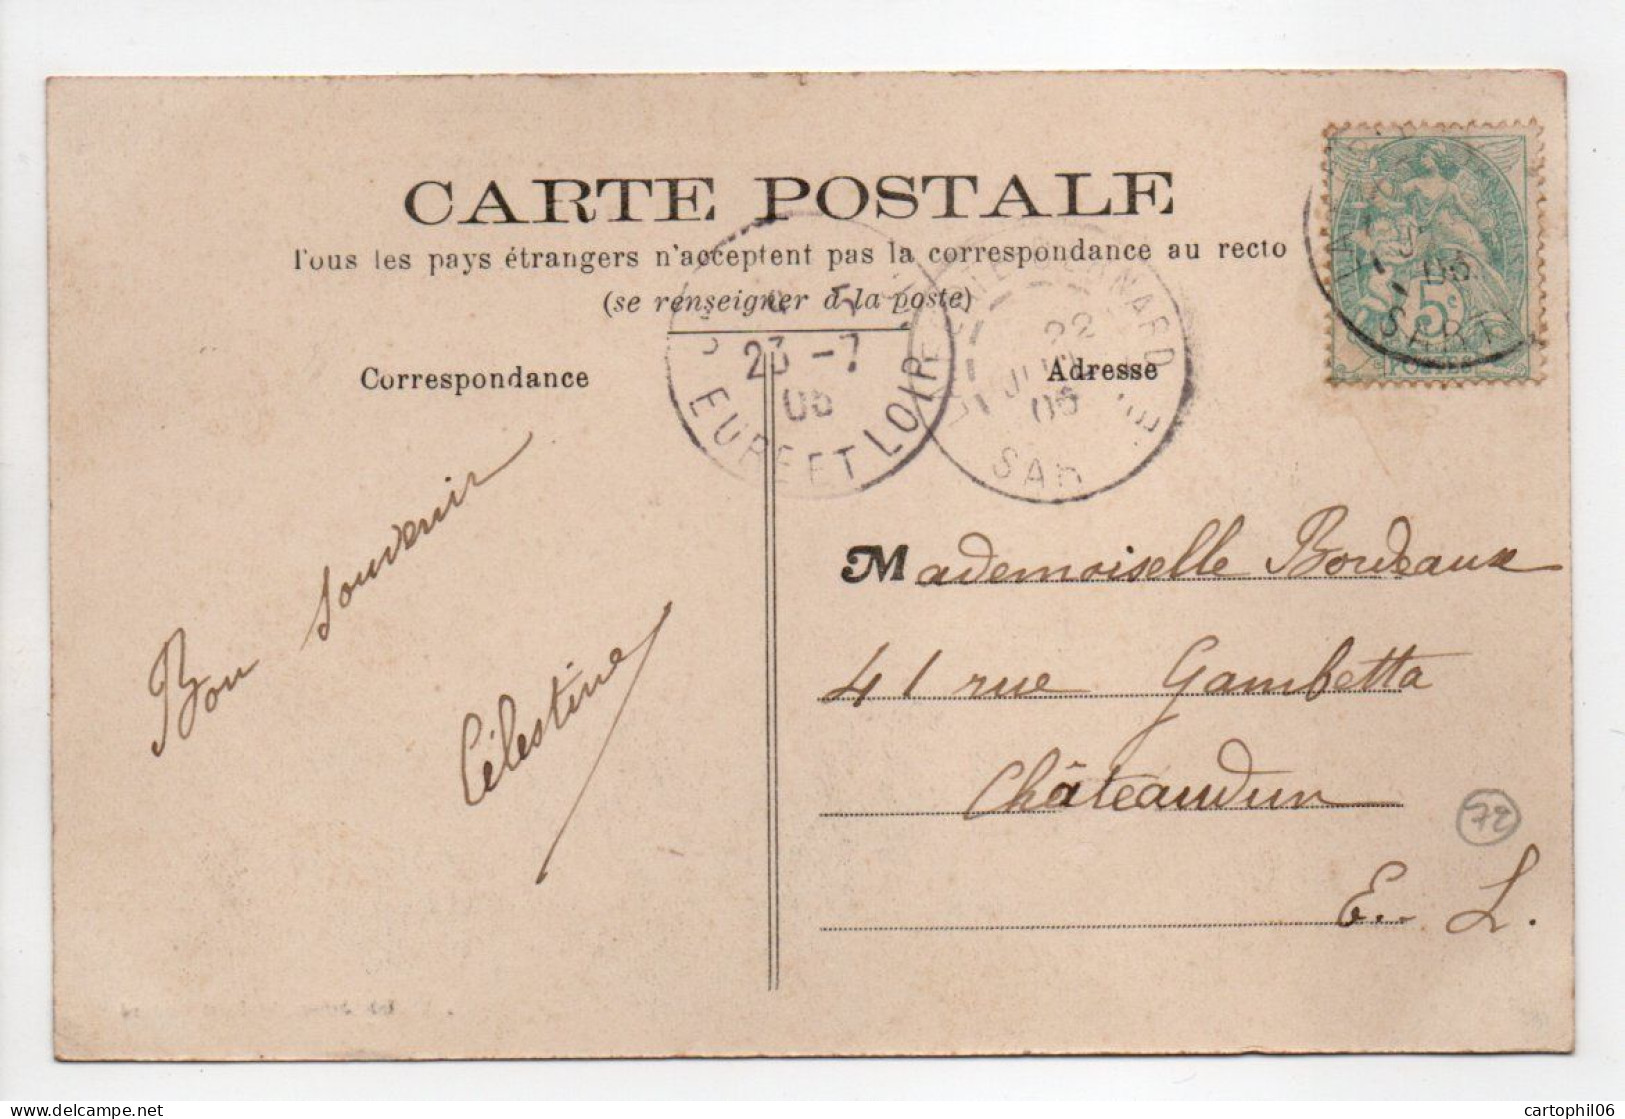 CARTE POSTALE
Tous les pays étrangers n'acceptent pas la correspondance au recto
(se renseigner à la poste)
Correspondance
Adresse
23 -7
05
EURE ET LOIR
22
JUIL
05
SAR
05
SART
5c
POSTES
Bon souvenir
Célestine
Mademoiselle Bordeaux
41 rue Gambetta
Châteaudun
E.. L.
72
cartophil06